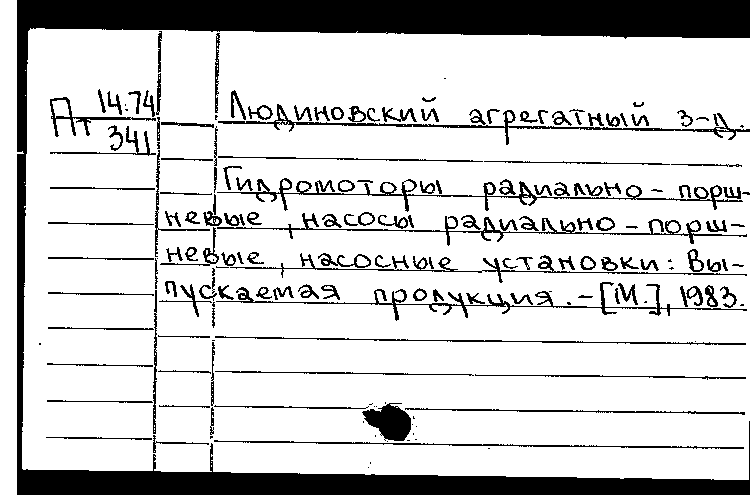 Пт 14.74
341
Людиновский агрегатный з-д.
Гидромоторы радиально-порш-
невые, насосы радиально-порш-
невые, насосные установки: Вы-
пускаемая продукция. - [М.], 1983.